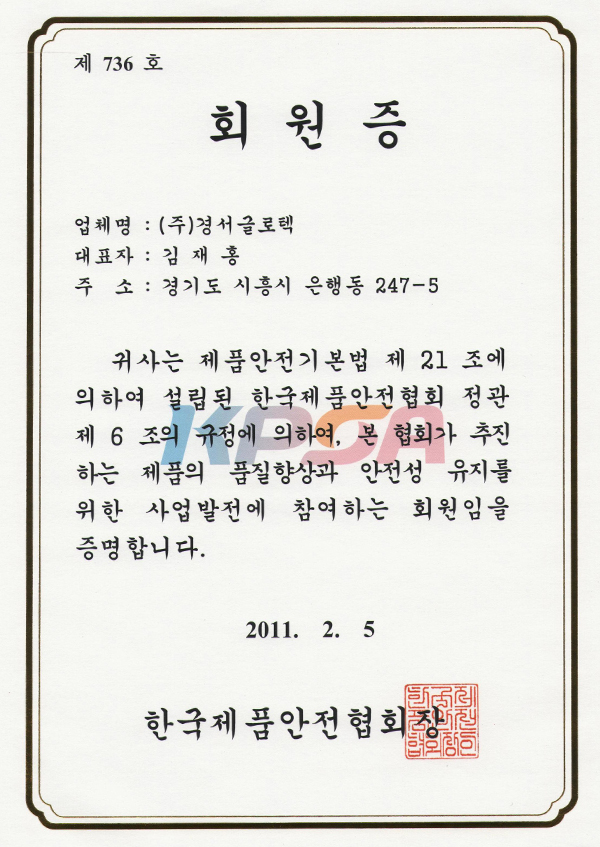 제 736 호
회 원 증
업체명 : (주)경서글로텍
대표자 : 김 재 홍
주 소 : 경기도 시흥시 은행동 247-5
귀사는 제품안전기본법 제 21 조에
의하여 설립된 한국제품안전협회 정관
제 6 조의 규정에 의하여, 본 협회가 추진
하는 제품의 품질향상과 안전성 유지를
위한 사업발전에 참여하는 회원임을
증명합니다.
KPSA
2011. 2. 5
한국제품안전협회장